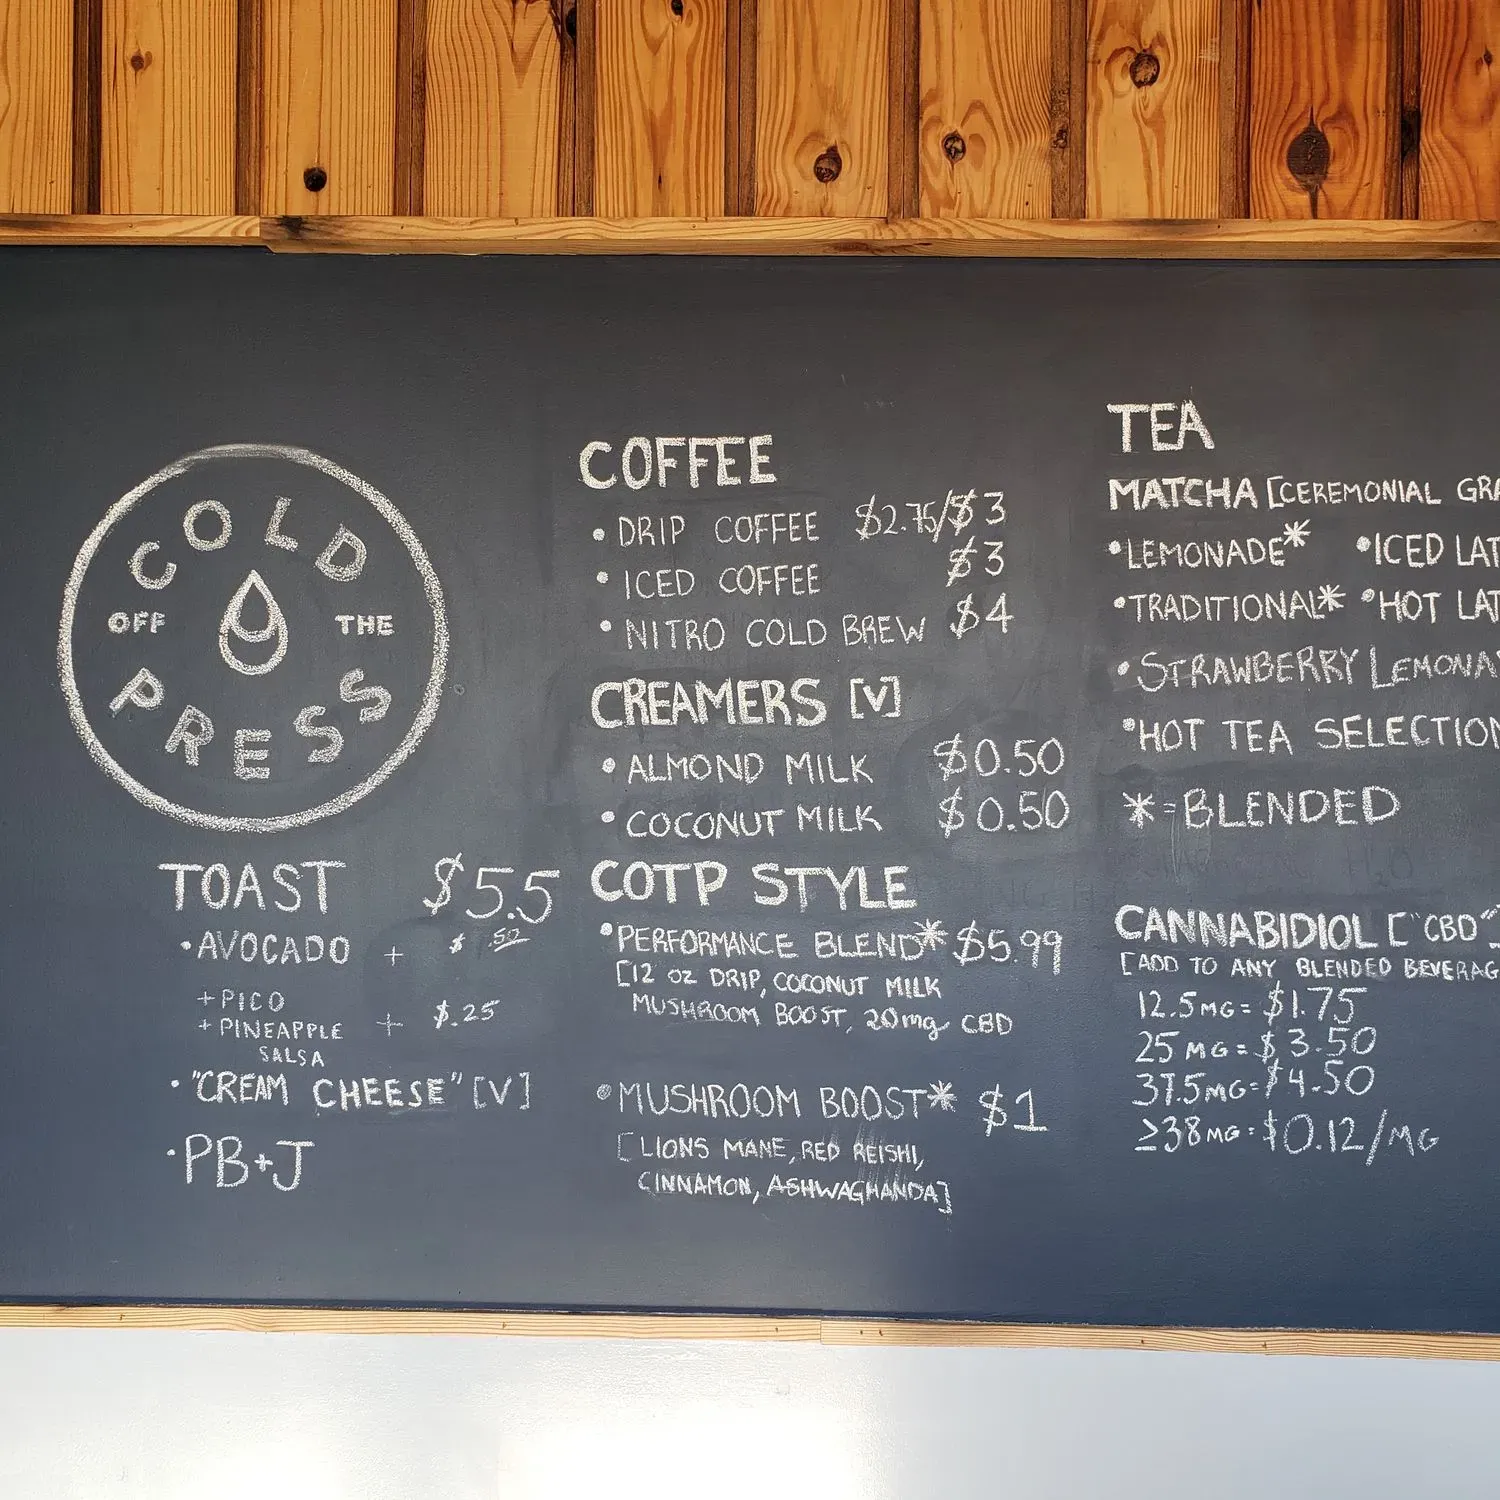 COLD
OFF THE
PRESS
TOAST $5.5
•AVOCADO + $.50
+PICO
+PINEAPPLE + $.25
SALSA
•"CREAM CHEESE" [V]
•PB+J
COFFEE
•DRIP COFFEE $2.75/$3
•ICED COFFEE $3
•NITRO COLD BREW $4
CREAMERS [V]
•ALMOND MILK $0.50
•COCONUT MILK $0.50
COTP STYLE
•PERFORMANCE BLEND* $5.99
[12 OZ DRIP, COCONUT MILK
MUSHROOM BOOST, 20mg CBD
•MUSHROOM BOOST* $1
[LIONS MANE, RED REISHI,
CINNAMON, ASHWAGHANDA]
TEA
MATCHA [CEREMONIAL GRA
•LEMONADE* •ICED LAT
•TRADITIONAL* •HOT LAT
•STRAWBERRY LEMONA
•HOT TEA SELECTION
*=BLENDED
CANNABIDIOL ["CBD"]
[ADD TO ANY BLENDED BEVERAG
12.5MG=$1.75
25MG=$3.50
37.5MG=$4.50
≥38MG=$0.12/MG